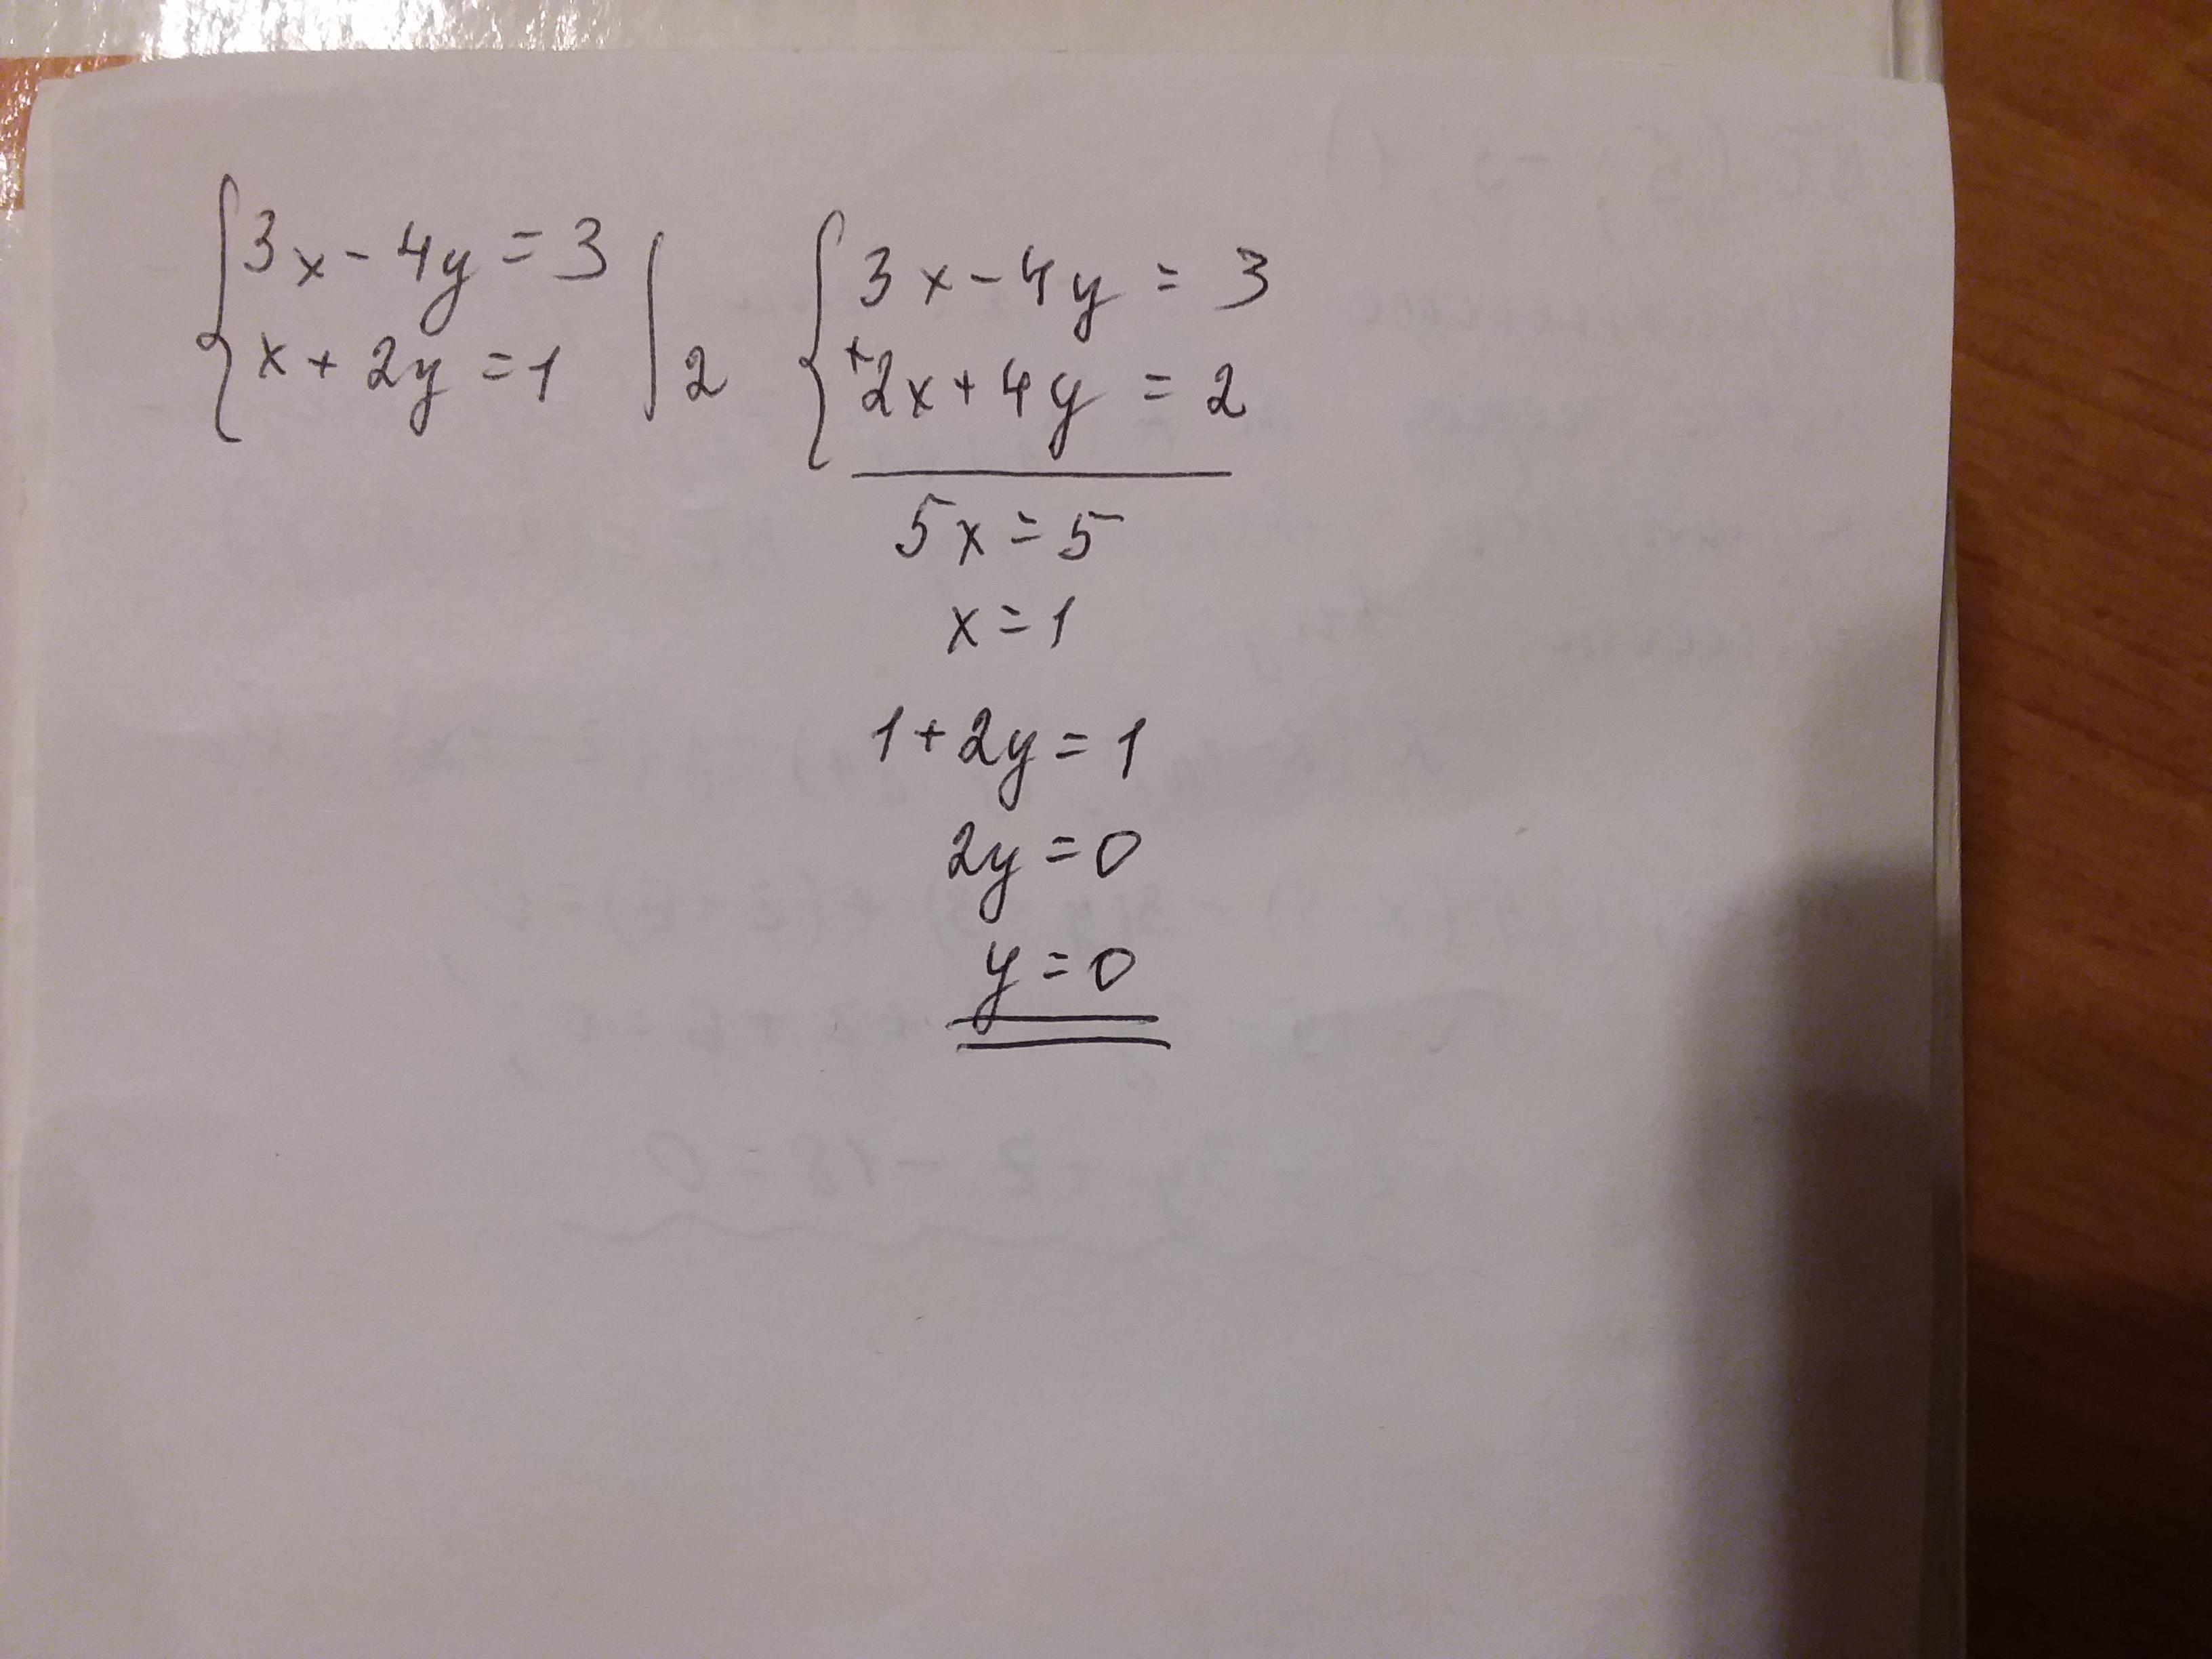 {3x - 4y = 3
{x + 2y = 1 | 2
{3x - 4y = 3
+
{2x + 4y = 2
5x = 5
x = 1
1 + 2y = 1
2y = 0
y = 0